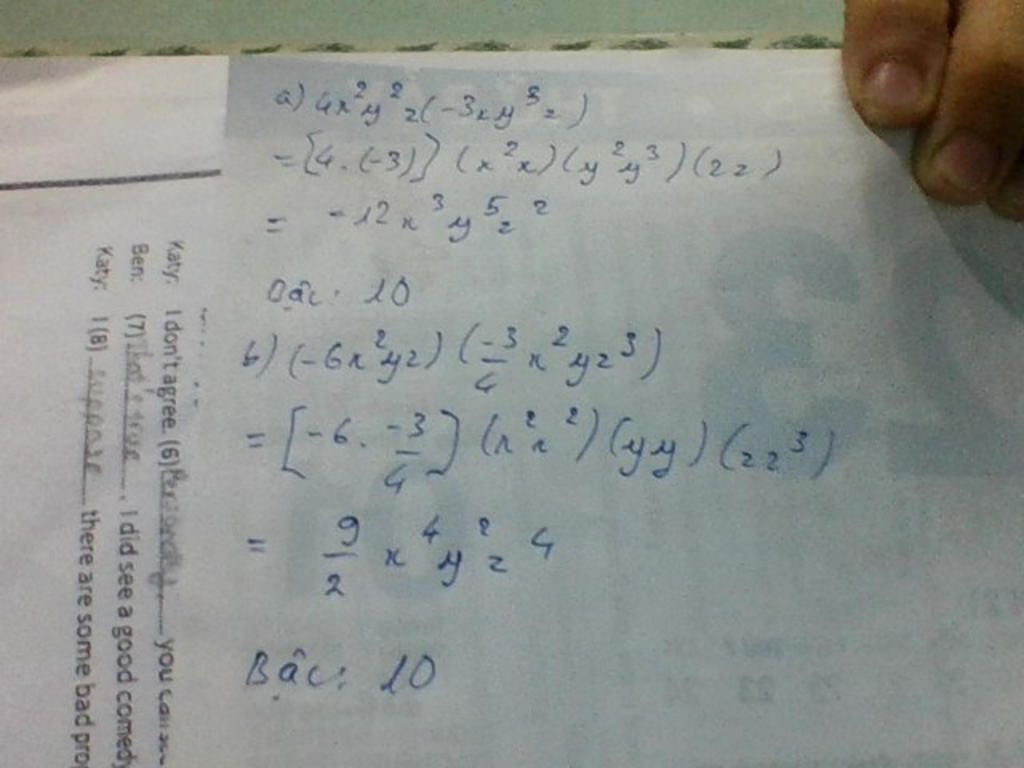 a) 4x²y²z(-3xy³z)
= [4.(-3)] (x²x)(y²y³)(zz)
= -12x³y⁵z²
Bậc: 10
b) (-6x²yz) (-3/4 x²yz³)
= [-6. -3/4] (x²x²)(yy)(zz³)
= 9/2 x⁴y²z⁴
Bậc: 10
Katy: I don't agree. (6) you can
Ben: (7) that's true. I did see a good comedy
Katy: I (8) suppose there are some bad pro